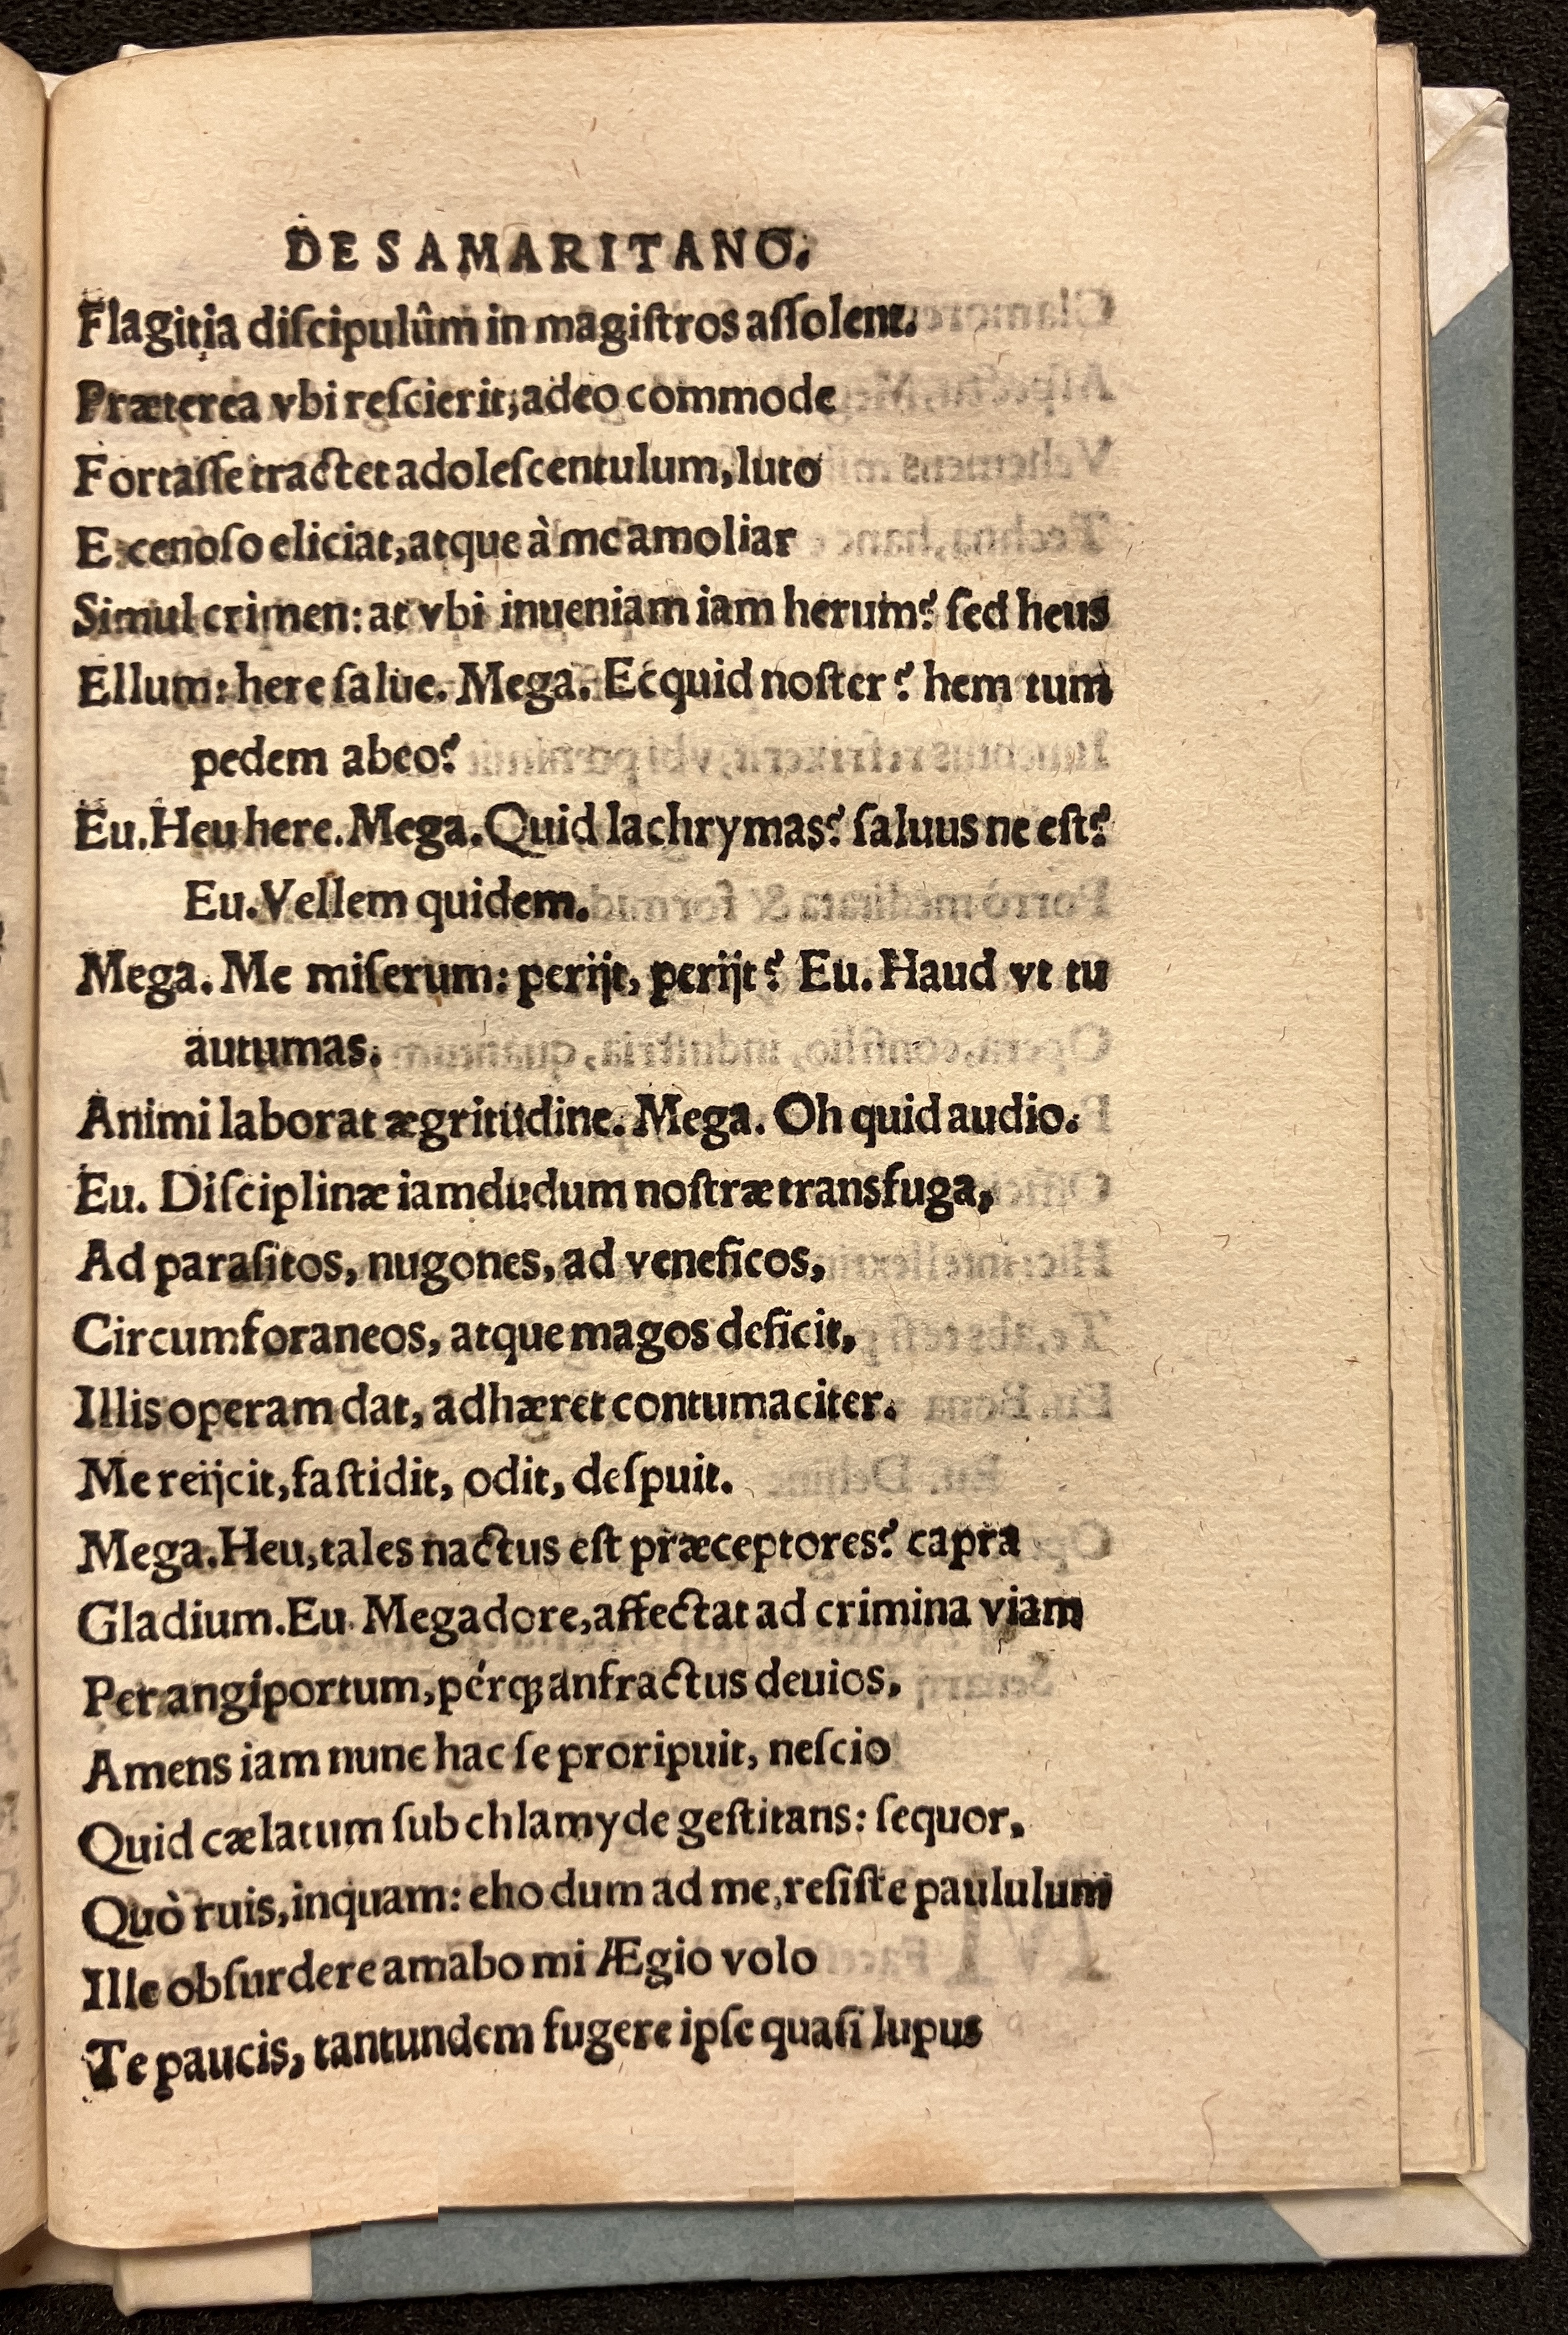 DE SAMARITANO.
Flagitia diſcipulûm in magiſtros aſſolent.
Præterea vbi reſcierit, adeo commode
Fortaſſe tractet adoleſcentulum, luto
E cenoſo eliciat, atque à me amoliar
Simul crimen: at vbi inueniam iam herum? ſed heus
Ellum: here ſalue. Mega. Ecquid noſter? hem tum
pedem abeo?
Eu. Heu here. Mega. Quid lachrymas? ſaluus ne eſt?
Eu. Vellem quidem.
Mega. Me miſerum: perijt, perijt? Eu. Haud vt tu
autumas.
Animi laborat ægritudine. Mega. Oh quid audio.
Eu. Diſciplinæ iamdudum noſtræ transfuga,
Ad paraſitos, nugones, ad veneficos,
Circumforaneos, atque magos deficit,
Illis operam dat, adhæret contumaciter.
Me reijcit, faſtidit, odit, deſpuit.
Mega. Heu, tales nactus eſt præceptores? capra
Gladium. Eu. Megadore, affectat ad crimina viam
Per angiportum, pérqꝫ anfractus deuios,
Amens iam nunc hac ſe proripuit, neſcio
Quid cælatum ſub chlamyde geſtitans: ſequor,
Quò ruis, inquam: eho dum ad me, reſiſte paululum
Ille obſurdere amabo mi Ægio volo
Te paucis, tantundem fugere ipſe quaſi lupus